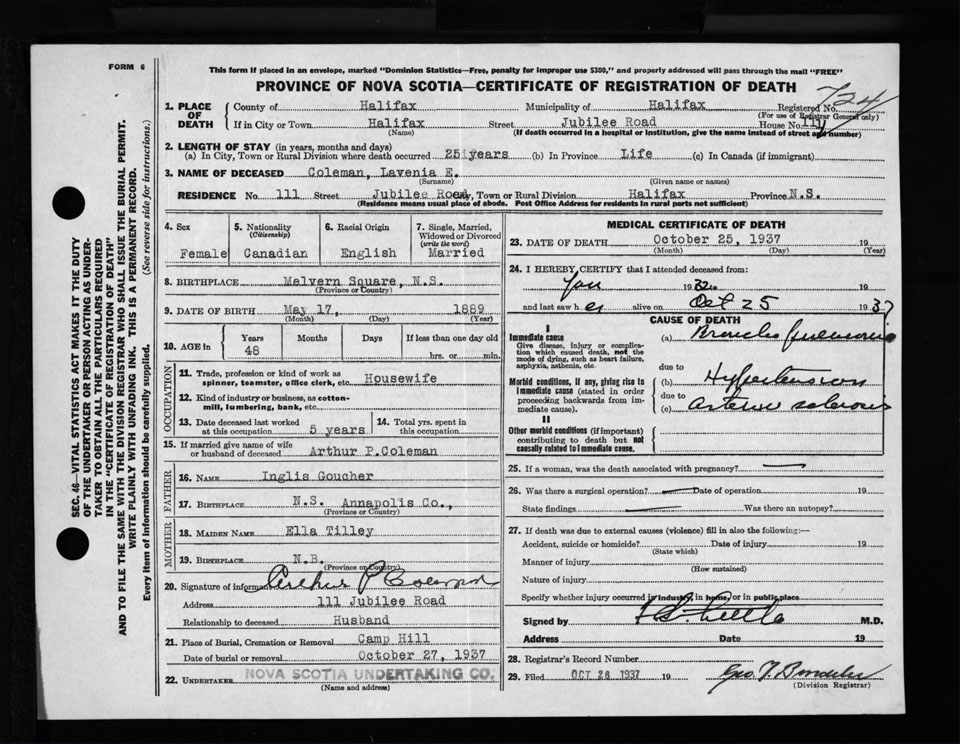 FORM 6
This form if placed in an envelope, marked "Dominion Statistics—Free, penalty for improper use $300," and properly addressed will pass through the mail "FREE"
PROVINCE OF NOVA SCOTIA—CERTIFICATE OF REGISTRATION OF DEATH
SEC. 46—VITAL STATISTICS ACT MAKES IT THE DUTY
OF THE UNDERTAKER OR PERSON ACTING AS UNDER-
TAKER TO OBTAIN ALL THE PARTICULARS REQUIRED
IN THE "CERTIFICATE OF REGISTRATION OF DEATH"
AND TO FILE THE SAME WITH THE DIVISION REGISTRAR WHO SHALL ISSUE THE BURIAL PERMIT.
WRITE PLAINLY WITH UNFADING INK. THIS IS A PERMANENT RECORD.
Every item of information should be carefully supplied. (See reverse side for instructions.)
1. PLACE OF DEATH County of Halifax Municipality of Halifax Registered No. 724
(For use of Registrar General only)
If in City or Town Halifax Street Jubilee Road House No. 111
(Name) (If death occurred in a hospital or institution, give the name instead of street and number)
2. LENGTH OF STAY (in years, months and days)
(a) In City, Town or Rural Division where death occurred 25 years (b) In Province Life (c) In Canada (if immigrant)
3. NAME OF DECEASED Coleman, Lavenia E.
(Surname) (Given name or names)
RESIDENCE No. 111 Street Jubilee Road City, Town or Rural Division Halifax Province N.S.
(Residence means usual place of abode. Post Office Address for residents in rural parts not sufficient)
4. Sex Female
5. Nationality (Citizenship) Canadian
6. Racial Origin English
7. Single, Married, Widowed or Divorced (write the word) Married
8. BIRTHPLACE Melvern Square, N.S.
(Province or Country)
9. DATE OF BIRTH May 17, 1889
(Month) (Day) (Year)
10. AGE in Years 48 Months Days If less than one day old hrs. or min.
OCCUPATION
11. Trade, profession or kind of work as spinner, teamster, office clerk, etc. Housewife
12. Kind of industry or business, as cotton-mill, lumbering, bank, etc.
13. Date deceased last worked at this occupation 5 years
14. Total yrs. spent in this occupation
15. If married give name of wife or husband of deceased Arthur P.Coleman
FATHER
16. NAME Inglis Goucher
17. BIRTHPLACE N.S. Annapolis Co.,
(Province or Country)
MOTHER
18. MAIDEN NAME Ella Tilley
19. BIRTHPLACE N.B.
(Province or Country)
20. Signature of informant Arthur P Coleman
Address 111 Jubilee Road
Relationship to deceased Husband
21. Place of Burial, Cremation or Removal Camp Hill
Date of burial or removal October 27, 1937
22. UNDERTAKER NOVA SCOTIA UNDERTAKING CO.
(Name and address)
MEDICAL CERTIFICATE OF DEATH
23. DATE OF DEATH October 25, 1937 19
(Month) (Day) (Year)
24. I HEREBY CERTIFY that I attended deceased from:
Jan 1932 to 19
and last saw her alive on Oct 25 1937
CAUSE OF DEATH
I
Immediate cause
Give disease, injury or complica-
tion which caused death, not the
mode of dying, such as heart failure,
asphyxia, asthenia, etc.
(a) Broncho pneumonia
due to
Morbid conditions, if any, giving rise to
Immediate cause (stated in order
proceeding backwards from im-
mediate cause).
(b) Hypertension
due to
(c) arterio sclerosis
II
Other morbid conditions (if important)
contributing to death but not
causally related to Immediate cause.
25. If a woman, was the death associated with pregnancy? —
26. Was there a surgical operation? — Date of operation 19
State findings — Was there an autopsy?
27. If death was due to external causes (violence) fill in also the following:—
Accident, suicide or homicide? Date of injury 19
(State which)
Manner of injury
(How sustained)
Nature of injury
Specify whether injury occurred in industry, in home, or in public place
Signed by M.D.
Address Date 19
28. Registrar's Record Number
29. Filed OCT 26 1937 19
(Division Registrar)